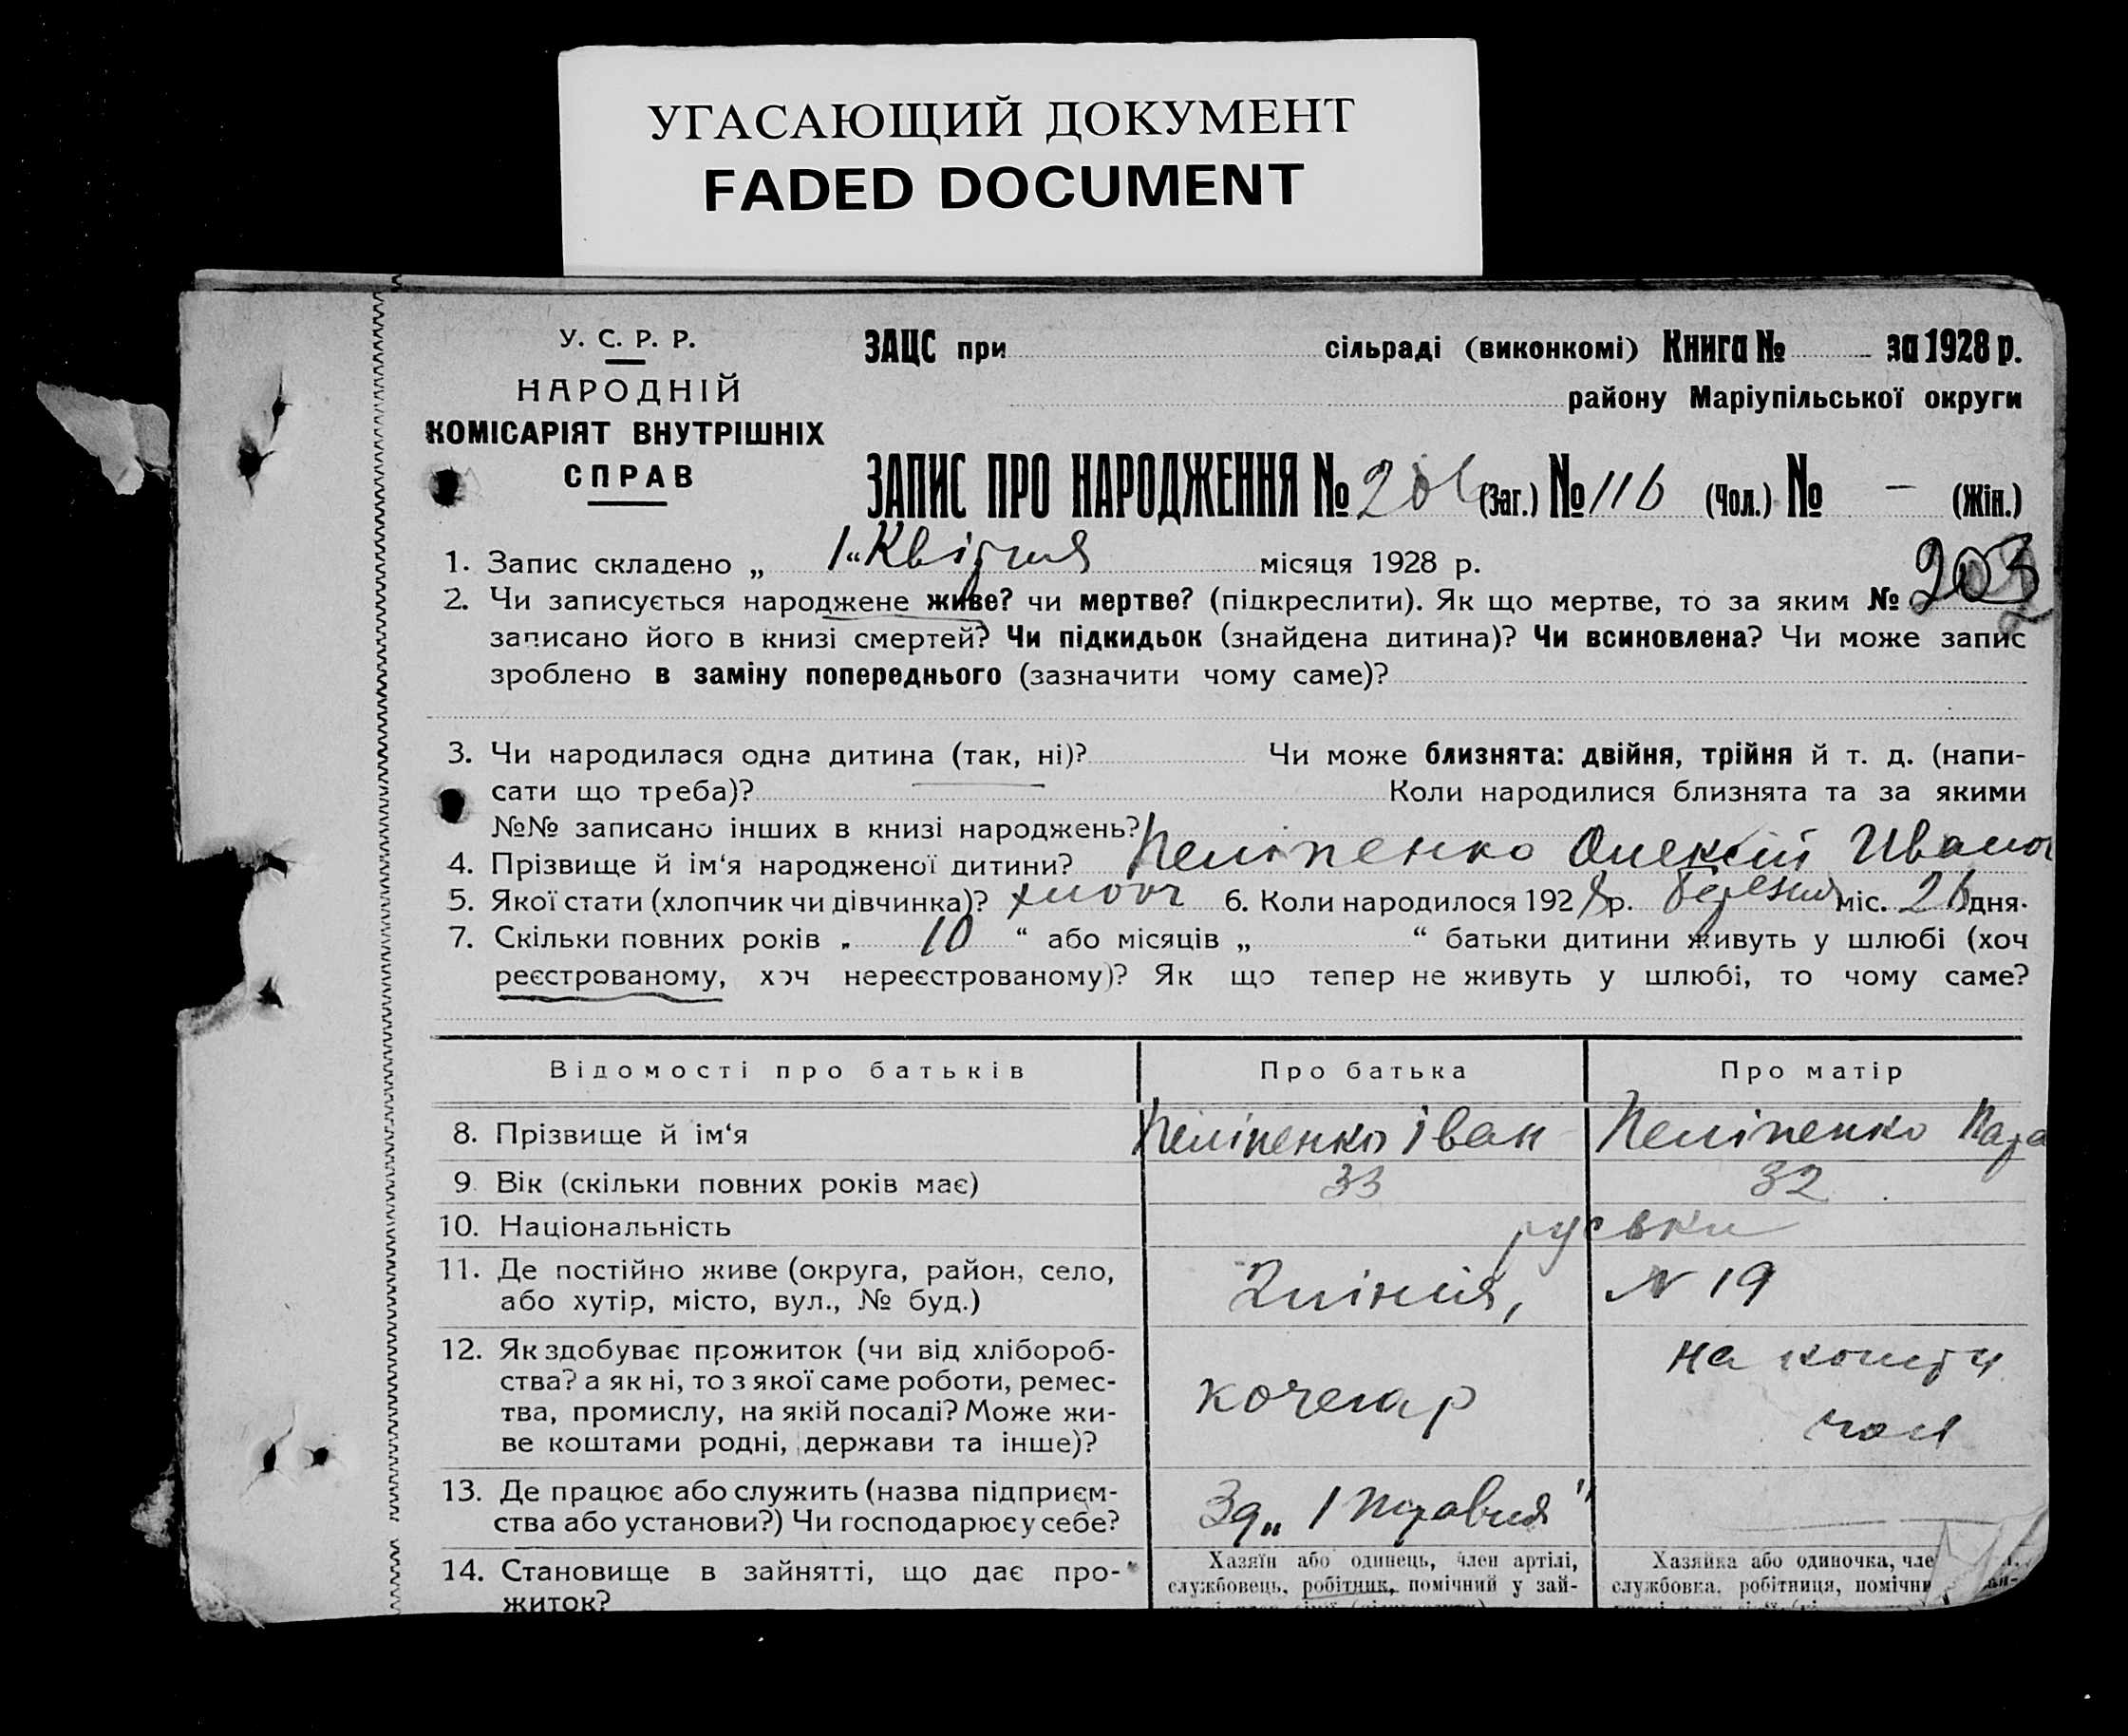 УГАСАЮЩИЙ ДОКУМЕНТ
FADED DOCUMENT
У. С. Р. Р.
НАРОДНІЙ
КОМІСАРІЯТ ВНУТРІШНІХ
СПРАВ
ЗАЦС при сільраді (виконкомі) Книга № за 1928 р.
району Маріупільської округи
ЗАПИС ПРО НАРОДЖЕННЯ № (Заг.) № 116 (Чол.) № - (Жін.)
1. Запис складено „ 1 “ Квітня місяця 1928 р.
203
2. Чи записується народжене живе? чи мертве? (підкреслити). Як що мертве, то за яким №
записано його в книзі смертей? Чи підкидьок (знайдена дитина)? Чи всиновлена? Чи може запис
зроблено в заміну попереднього (зазначити чому саме)?
3. Чи народилася одна дитина (так, ні)? Чи може близнята: двійня, трійня й т. д. (напи-
сати що треба)? Коли народилися близнята та за якими
№№ записано інших в книзі народжень?
4. Прізвище й ім‘я народженої дитини? Пеліпенко Олексій Ивано
5. Якої стати (хлопчик чи дівчинка)? хлопч 6. Коли народилося 1928 р. березня міс. 26 дня.
7. Скільки повних років „ 10 “ або місяців „ “ батьки дитини живуть у шлюбі (хоч
реєстрованому, хоч нереєстрованому)? Як що тепер не живуть у шлюбі, то чому саме?
Відомості про батьків Про батька Про матір
8. Прізвище й ім‘я Пеліпенко Іван Пеліпенко Пара
9. Вік (скільки повних років має) 33 32
10. Національність руські
11. Де постійно живе (округа, район, село,
або хутір, місто, вул., № буд.) 2 лінія, N 19
12. Як здобуває прожиток (чи від хлібороб-
ства? а як ні, то з якої саме роботи, ремес-
тва, промислу, на якій посаді? Може жи-
ве коштами родні, держави та інше)?
кочегар
на кошти
чол
13. Де працює або служить (назва підприєм-
ства або установи?) Чи господарює у себе?
Зд „1 травня"
14. Становище в зайнятті, що дає про-
житок?
Хазяїн або одинець, член артілі,
службовець, робітник, помічний у зай-
Хазяйка або одиночка, чле
службовка, робітниця, помічн